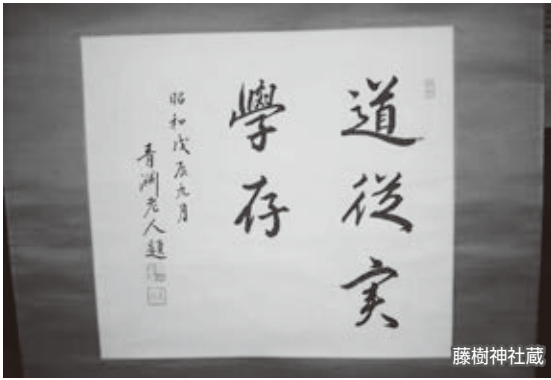 道従実
學存
昭和戊辰九月
青淵老人題
藤樹神社蔵